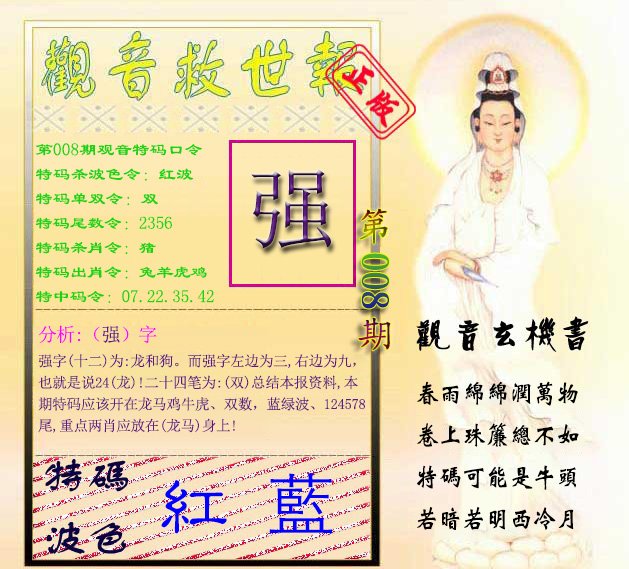 觀音救世報
正版
第008期观音特码口令
特码杀波色令：红波
特码单双令：双
特码尾数令：2356
特码杀肖令：猪
特码出肖令：兔羊虎鸡
特中码令：07.22.35.42
强
第008期
分析:（强）字
强字(十二)为:龙和狗。而强字左边为三,右边为九,
也就是说24(龙)!二十四笔为:(双)总结本报资料,本
期特码应该开在龙马鸡牛虎、双数，蓝绿波、124578
尾,重点两肖应放在(龙马)身上!
特碼
波色
紅 藍
觀音玄機書
春雨綿綿潤萬物
卷上珠簾總不如
特碼可能是牛頭
若暗若明西冷月